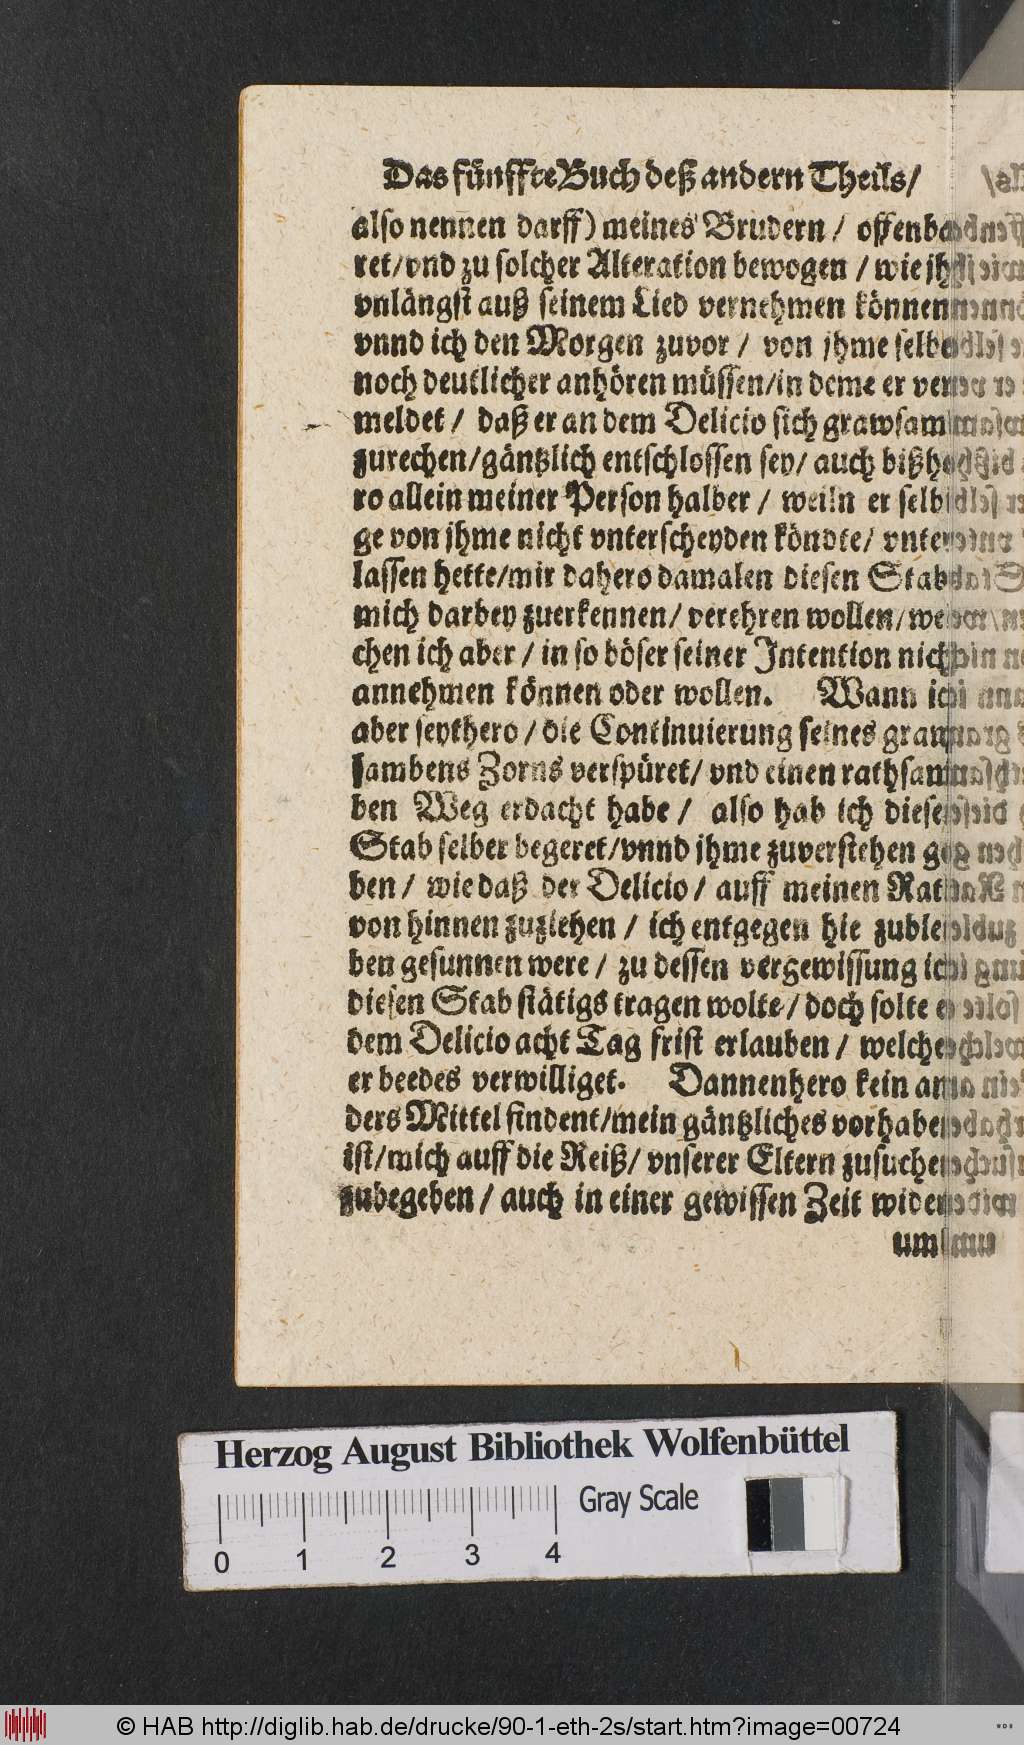 Das fünffte Buch deß andern Theils/
also nennen darff) meines Brudern / offenba-
ret/vnd zu solcher Alteration bewogen / wie jh
vnlängst auß seinem Lied vernehmen können
vnnd ich den Morgen zuvor / von jhme selbe
noch deutlicher anhören müssen/in deme er ver-
meldet / daß er an dem Delicio sich grawsam
zurechen/gäntzlich entschlossen sey/ auch bißhe-
ro allein meiner Person halber / weiln er selbi-
ge von jhme nicht vnterscheyden köndte/ vnter-
lassen hette/mir dahero damalen diesen Stab
mich darbey zuerkennen/ verehren wollen/ wel-
chen ich aber / in so böser seiner Intention nicht
annehmen können oder wollen. Wann ich
aber seythero / die Continuierung seines graw-
sambens Zorns verspüret/ vnd einen rathsam-
ben Weg erdacht habe / also hab ich diesen
Stab selber begeret/vnnd jhme zuverstehen ge-
ben / wie daß der Delicio / auff meinen Rath
von hinnen zuziehen / ich entgegen hie zublei-
ben gesunnen were / zu dessen vergewissung ich
diesen Stab stätigs tragen wolte/ doch solte e
dem Delicio acht Tag frist erlauben / welches
er beedes verwilliget. Dannenhero kein an-
ders Mittel findent/mein gäntzliches vorhaben
ist/mich auff die Reiß/ vnserer Eltern zusuchen
zubegeben / auch in einer gewissen Zeit wider-
umb
Herzog August Bibliothek Wolfenbüttel
Gray Scale
0 1 2 3 4
© HAB http://diglib.hab.de/drucke/90-1-eth-2s/start.htm?image=00724